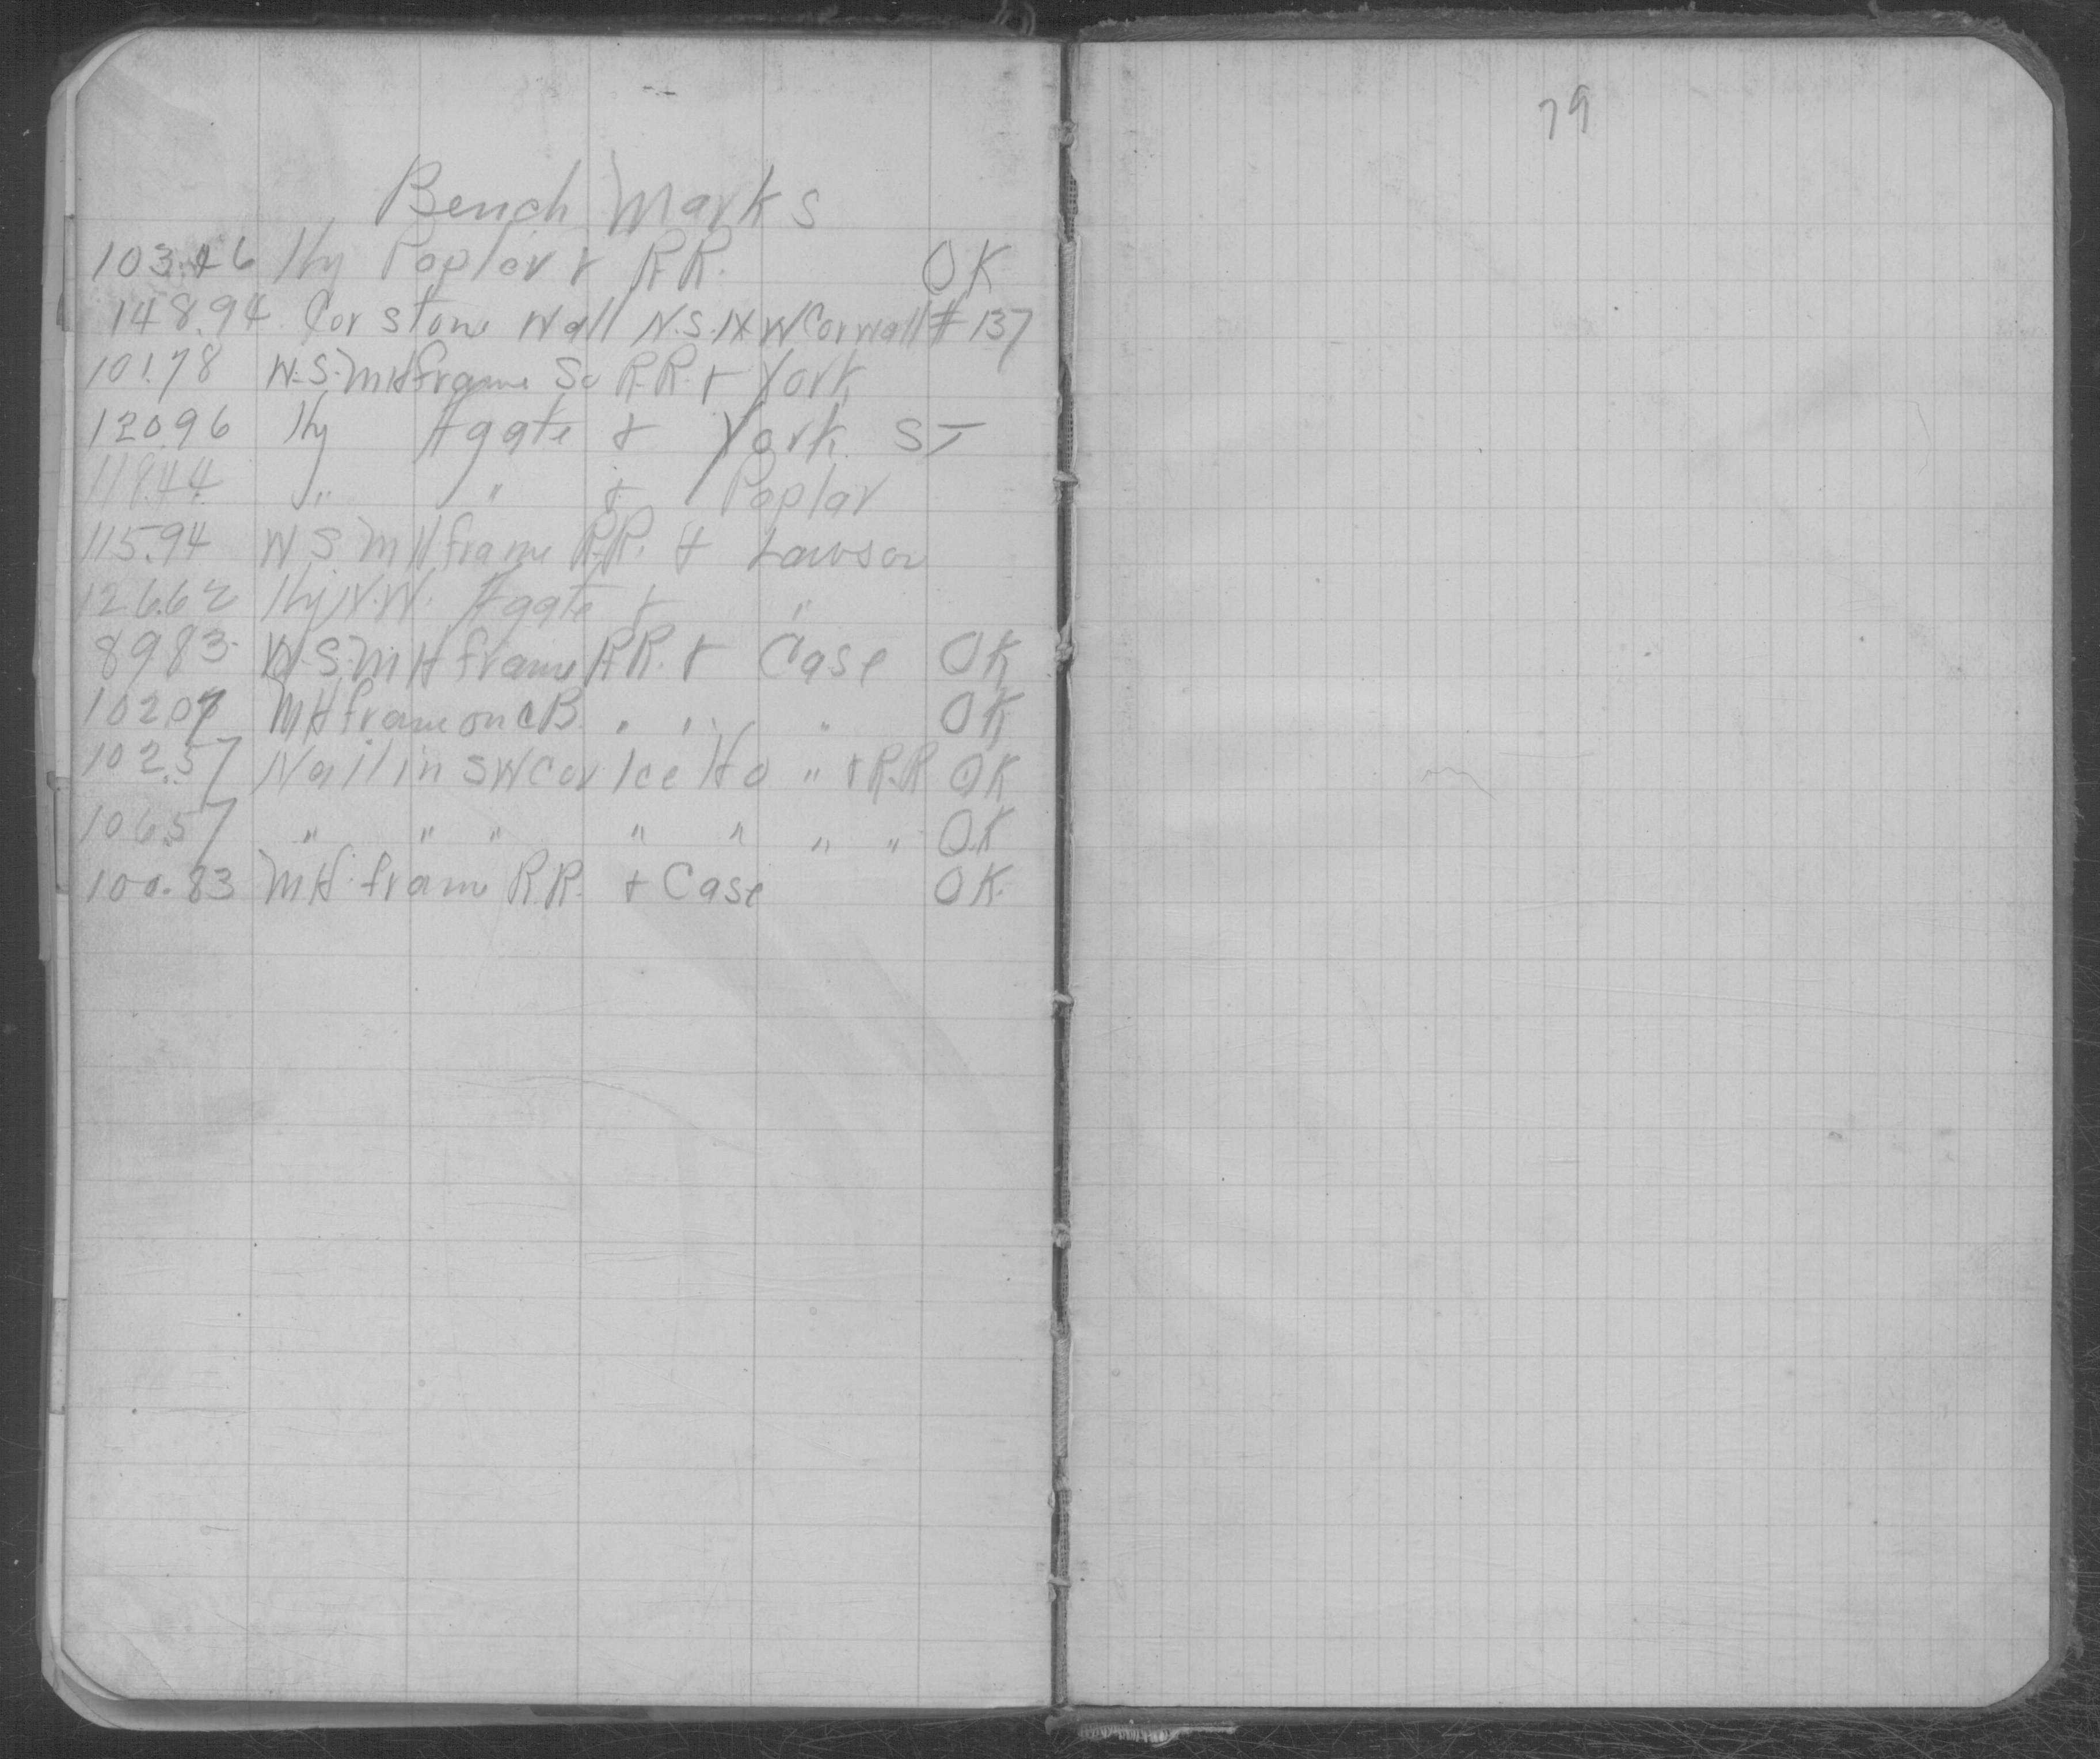 Bench Marks
103.26 Hy Poplar & R.R. OK
148.94 Cor stone Wall N.S. W Cor wall #137
101.78 W.S. MH frame So R.R. & York
120.96 Hy Agate & York ST
119.44 " " & Poplar
115.94 W S MH frame R.R. & Lawson
126.62 Hy N.W. Agate & "
89.83 W.S. MH frame R.R. & Case OK
102.07 MH frame on CB. " " " OK
102.57 Nail in SW Cor Ice Ho " & R.R OK
106.57 " " " " " " " O.K
100.83 MH frame R.R. & Case OK.
79